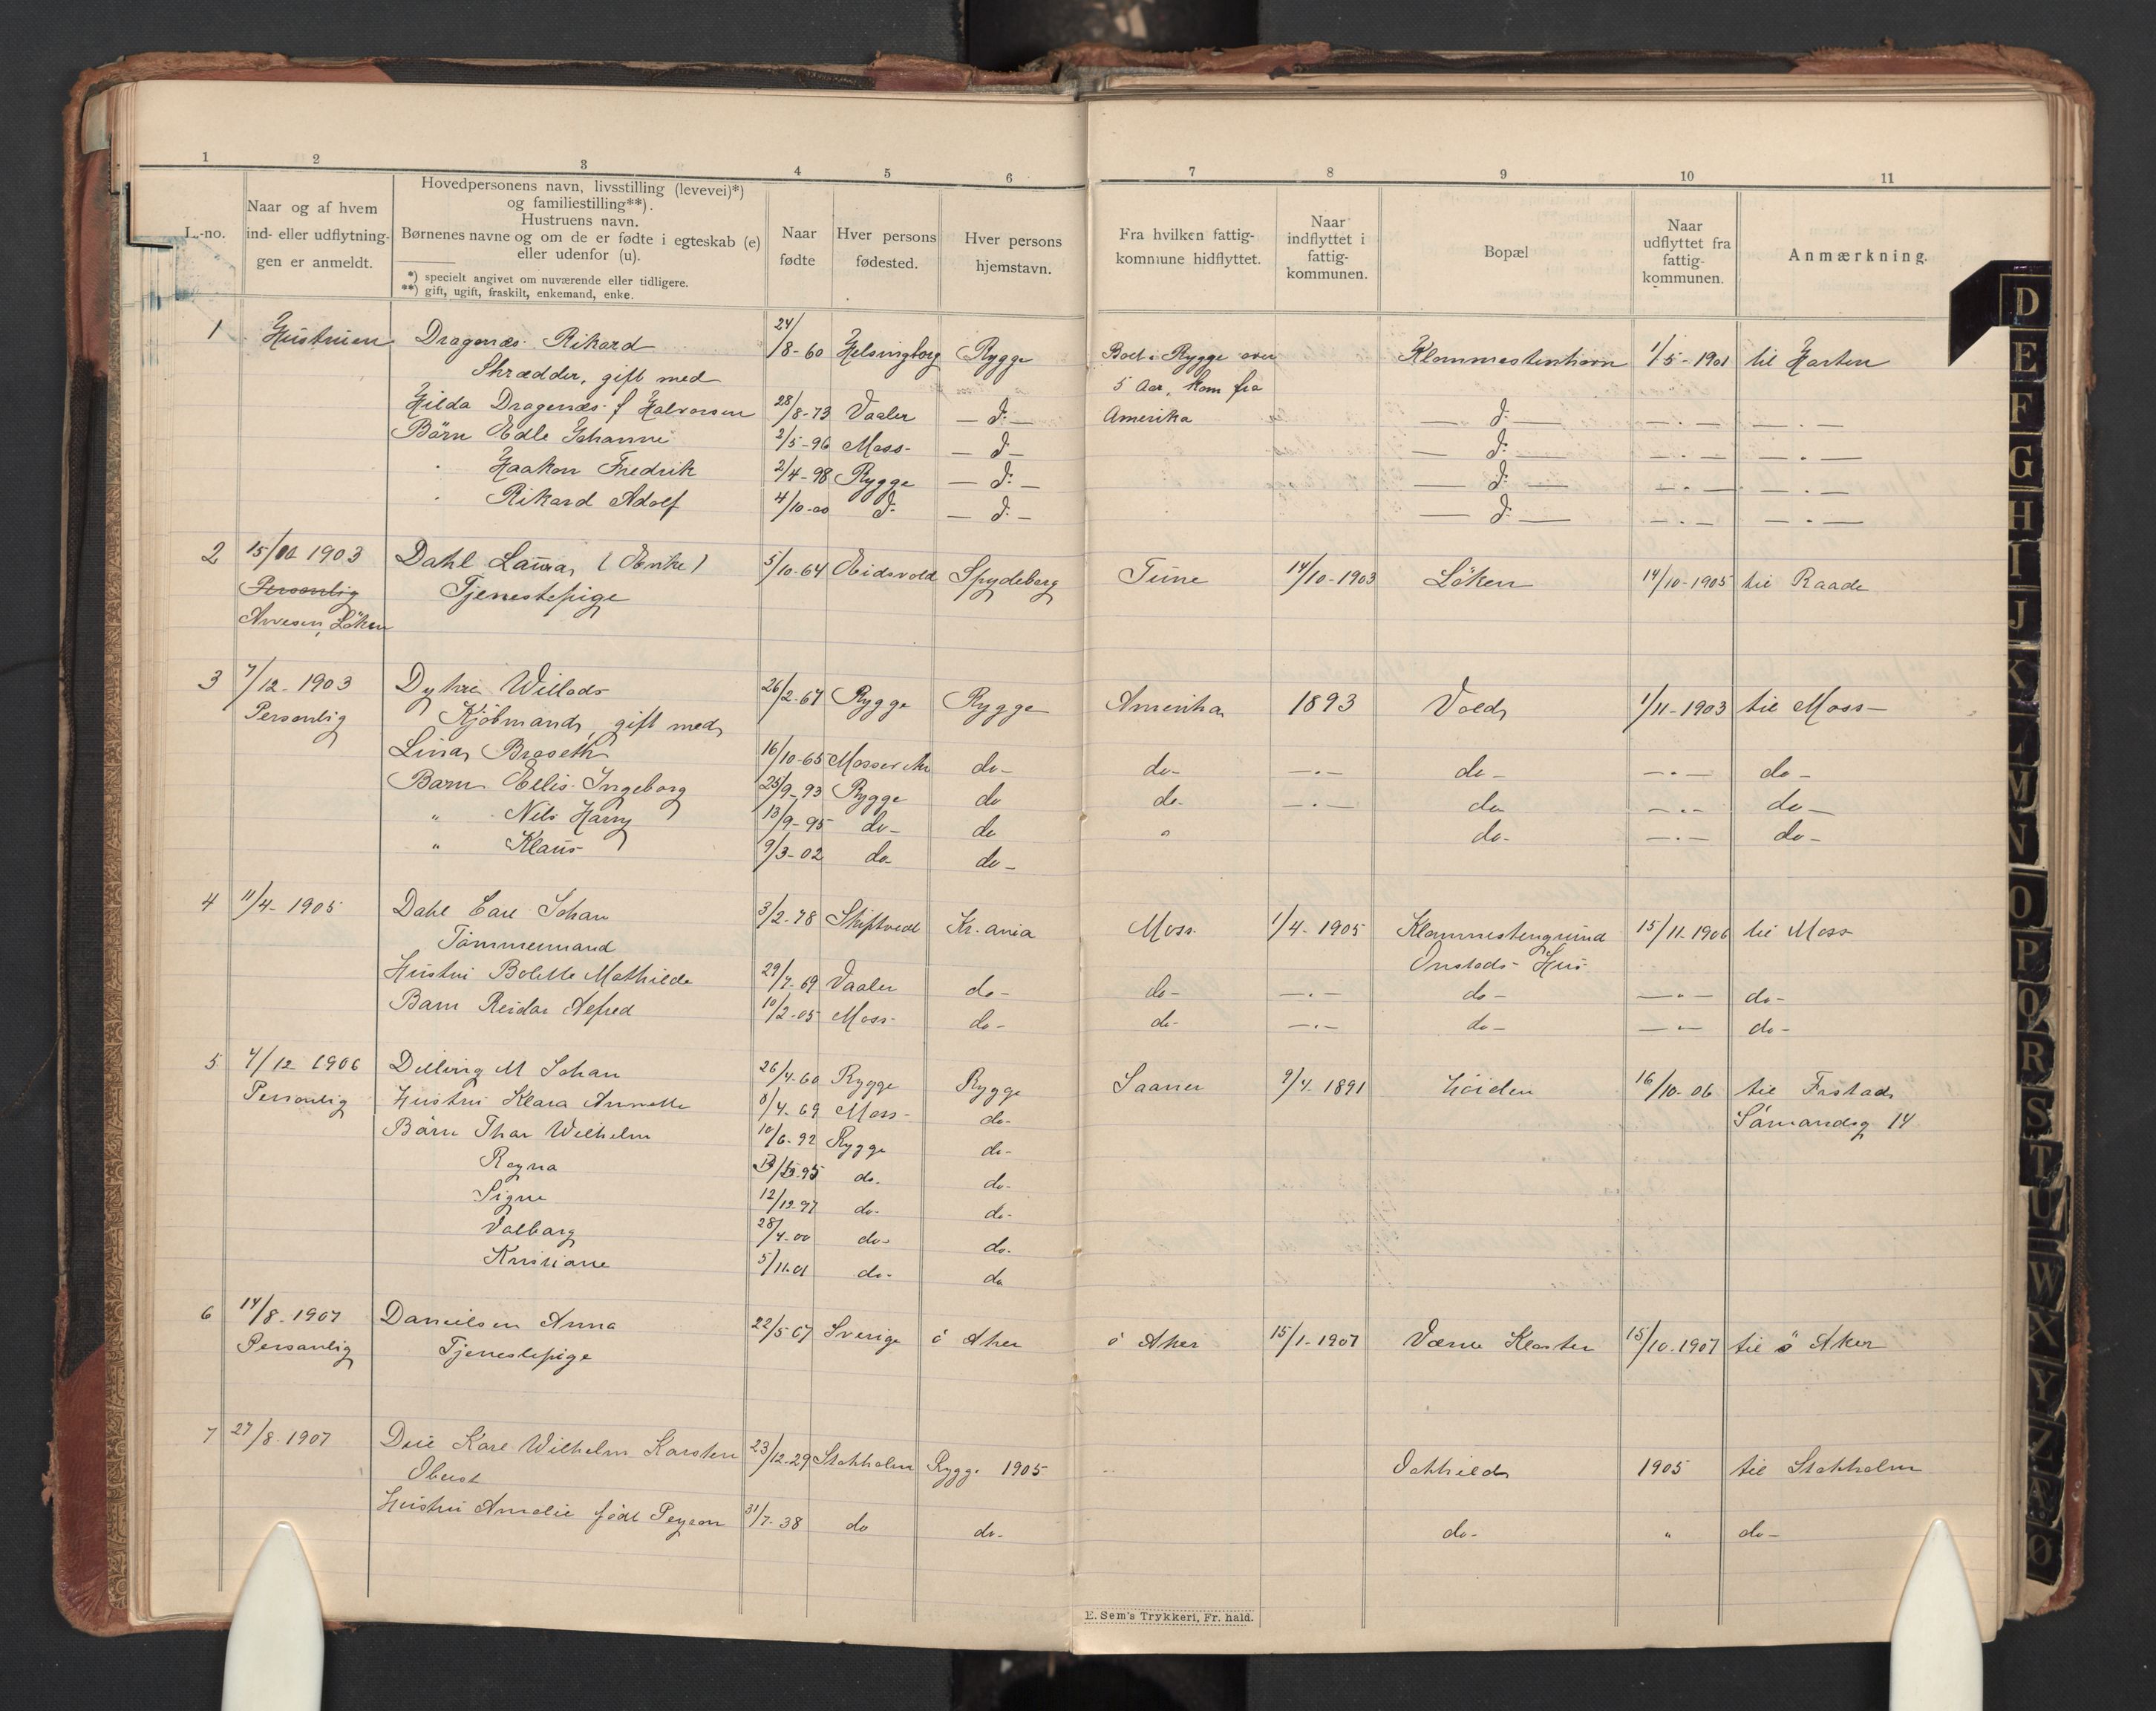 1 2 3 4 5 6 7 8 9 10 11
L.-no.
Naar og af hvem
ind- eller udflytnin-
gen er anmeldt.
Hovedpersonens navn, livsstilling (levevei)*)
og familiestilling**).
Hustruens navn.
Børnenes navne og om de er fødte i egteskab (e)
eller udenfor (u).
*) specielt angivet om nuværende eller tidligere.
**) gift, ugift, fraskilt, enkemand, enke.
Naar
fødte
Hver persons
fødested.
Hver persons
hjemstavn.
Fra hvilken fattig-
kommune hidflyttet.
Naar
indflyttet i
fattig-
kommunen.
Bopæl
Naar
udflyttet fra
fattig-
kommunen.
Anmærkning.
1 Hustruen Dragenæs Rikard 24/8-60 Helsingborg Rygge Boet i Rygge over Klommestenhorn 1/5-1901 til Horten
Skrædder, gift med 5 Aar, kom fra
Hilda Dragenæs f Halvorsen 28/8-73 Vaaler — d: — Amerika — d: — — . — — . —
Börn Edle Johanne 2/5-96 Moss — d — — d: — — . — — . —
" Haakon Fredrik 2/4-98 Rygge — d: — — d: — — . — — . —
" Rikard Adolf 4/10-00 d: — d: — — d: — — . — — . —
2 15/ 1903 Dahl Laura, (Enke) 5/10-64 Eidsvold Spydeberg Tune 14/10-1903 Löken 14/10-1905 til Raade
Personlig Tjenestepige
Arvesen, Löken
3 7/12-1903 Dyhre Willads 26/2-67 Rygge Rygge Amerika 1893 Vold 1/11-1903 til Moss
Personlig Kjöbmand, gift med
Lina Braseth 16/10-65 Mosser do- do- — . — do- — . — do-
Barn Ellis Ingeborg 25/9-93 Rygge do do- — . — do — . — do-
" Nils Harry 13/9-95 do- do " do- — . — do-
" Klaus 9/3-02 do- do-
4 11/4-1905 Dahl Carl Johan 3/2-78 Skiptvedt Kr.ania Moss 1/4-1905 Klommestengrund 15/11-1906 til Moss
Tömmermand Onstads Hus
Hustru Bolette Mathilde 29/7-69 Vaaler do- do- — . — do- — . — do-
Barn Reidar Alfred 10/2-05 Moss do- do- — . — do- — . — do-
5 4/12 1906 Dilling M Johan 26/4-60 Rygge Rygge Saaner 9/4 1891 Höiden 16/10-06 til Frstad
Personlig Hustru Klara Annette 8/4-69 Moss do- Sömandsg 14
Börn Thor Wilhelm 10/6-92 Rygge do-
Ragna do- do-
Signe 12/12-97 do- do-
Valborg 28/4-00 do- do-
Kristiane 5/11-01 do- do
6 14/8-1907 Danielsen Anna 22/5 67 Sverige ö Aker ö Aker 15/1-1907 Værne Kloster 15/10-1907 til ö Aker
Personlig Tjenestepige
7 27/8-1907 Due Karl Wilhelm Karsten 23/12-29 Stokholm Rygge 1905 Vakhild 1905 til Stokholm
Oberst
Hustru Amelie födt Peyron 31/7-38 do do- do- " do-
E. Sem's Trykkeri, Fr. hald.
D
E
F
G
H
I
J
K
L
M
N
O
P
Q
R
S
T
U
W
X
Y
Z
Æ
Ø